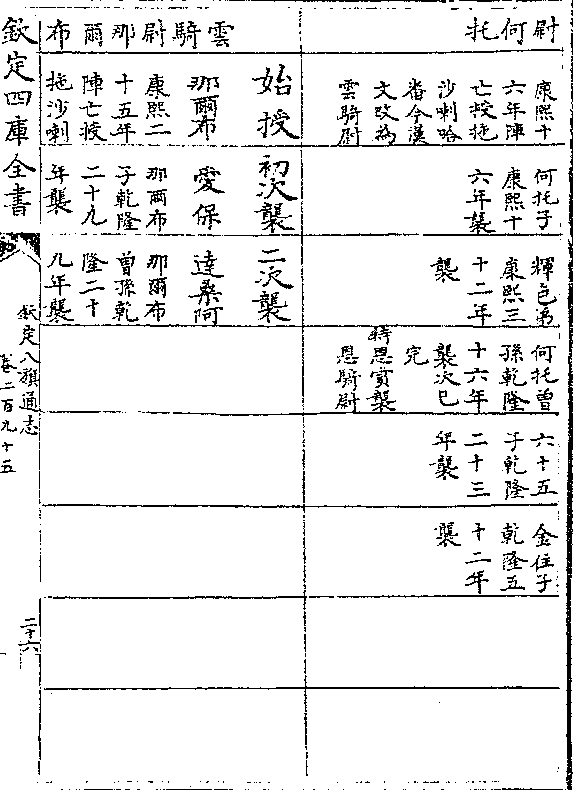 尉何托
康熙十
六年陣
亡授拖
沙喇哈
番今漢
文改為
雲騎尉
何托子
康熙十
六年襲
輝色弟
康熙三
十二年
襲
何托曾
孫乾隆
十六年
襲次已
完
特恩賞襲
恩騎尉
六十五
子乾隆
二十三
年襲
金住子
乾隆五
十二年
襲
雲騎尉那爾布
始授
那爾布
康熙二
十五年
陣亡授
拖沙喇
初次襲
愛保
那爾布
子乾隆
二十九
年襲
二次襲
達桑阿
那爾布
曾孫乾
隆二十
九年襲
欽定四庫全書
欽定八旗通志
卷二百九十五
二十六